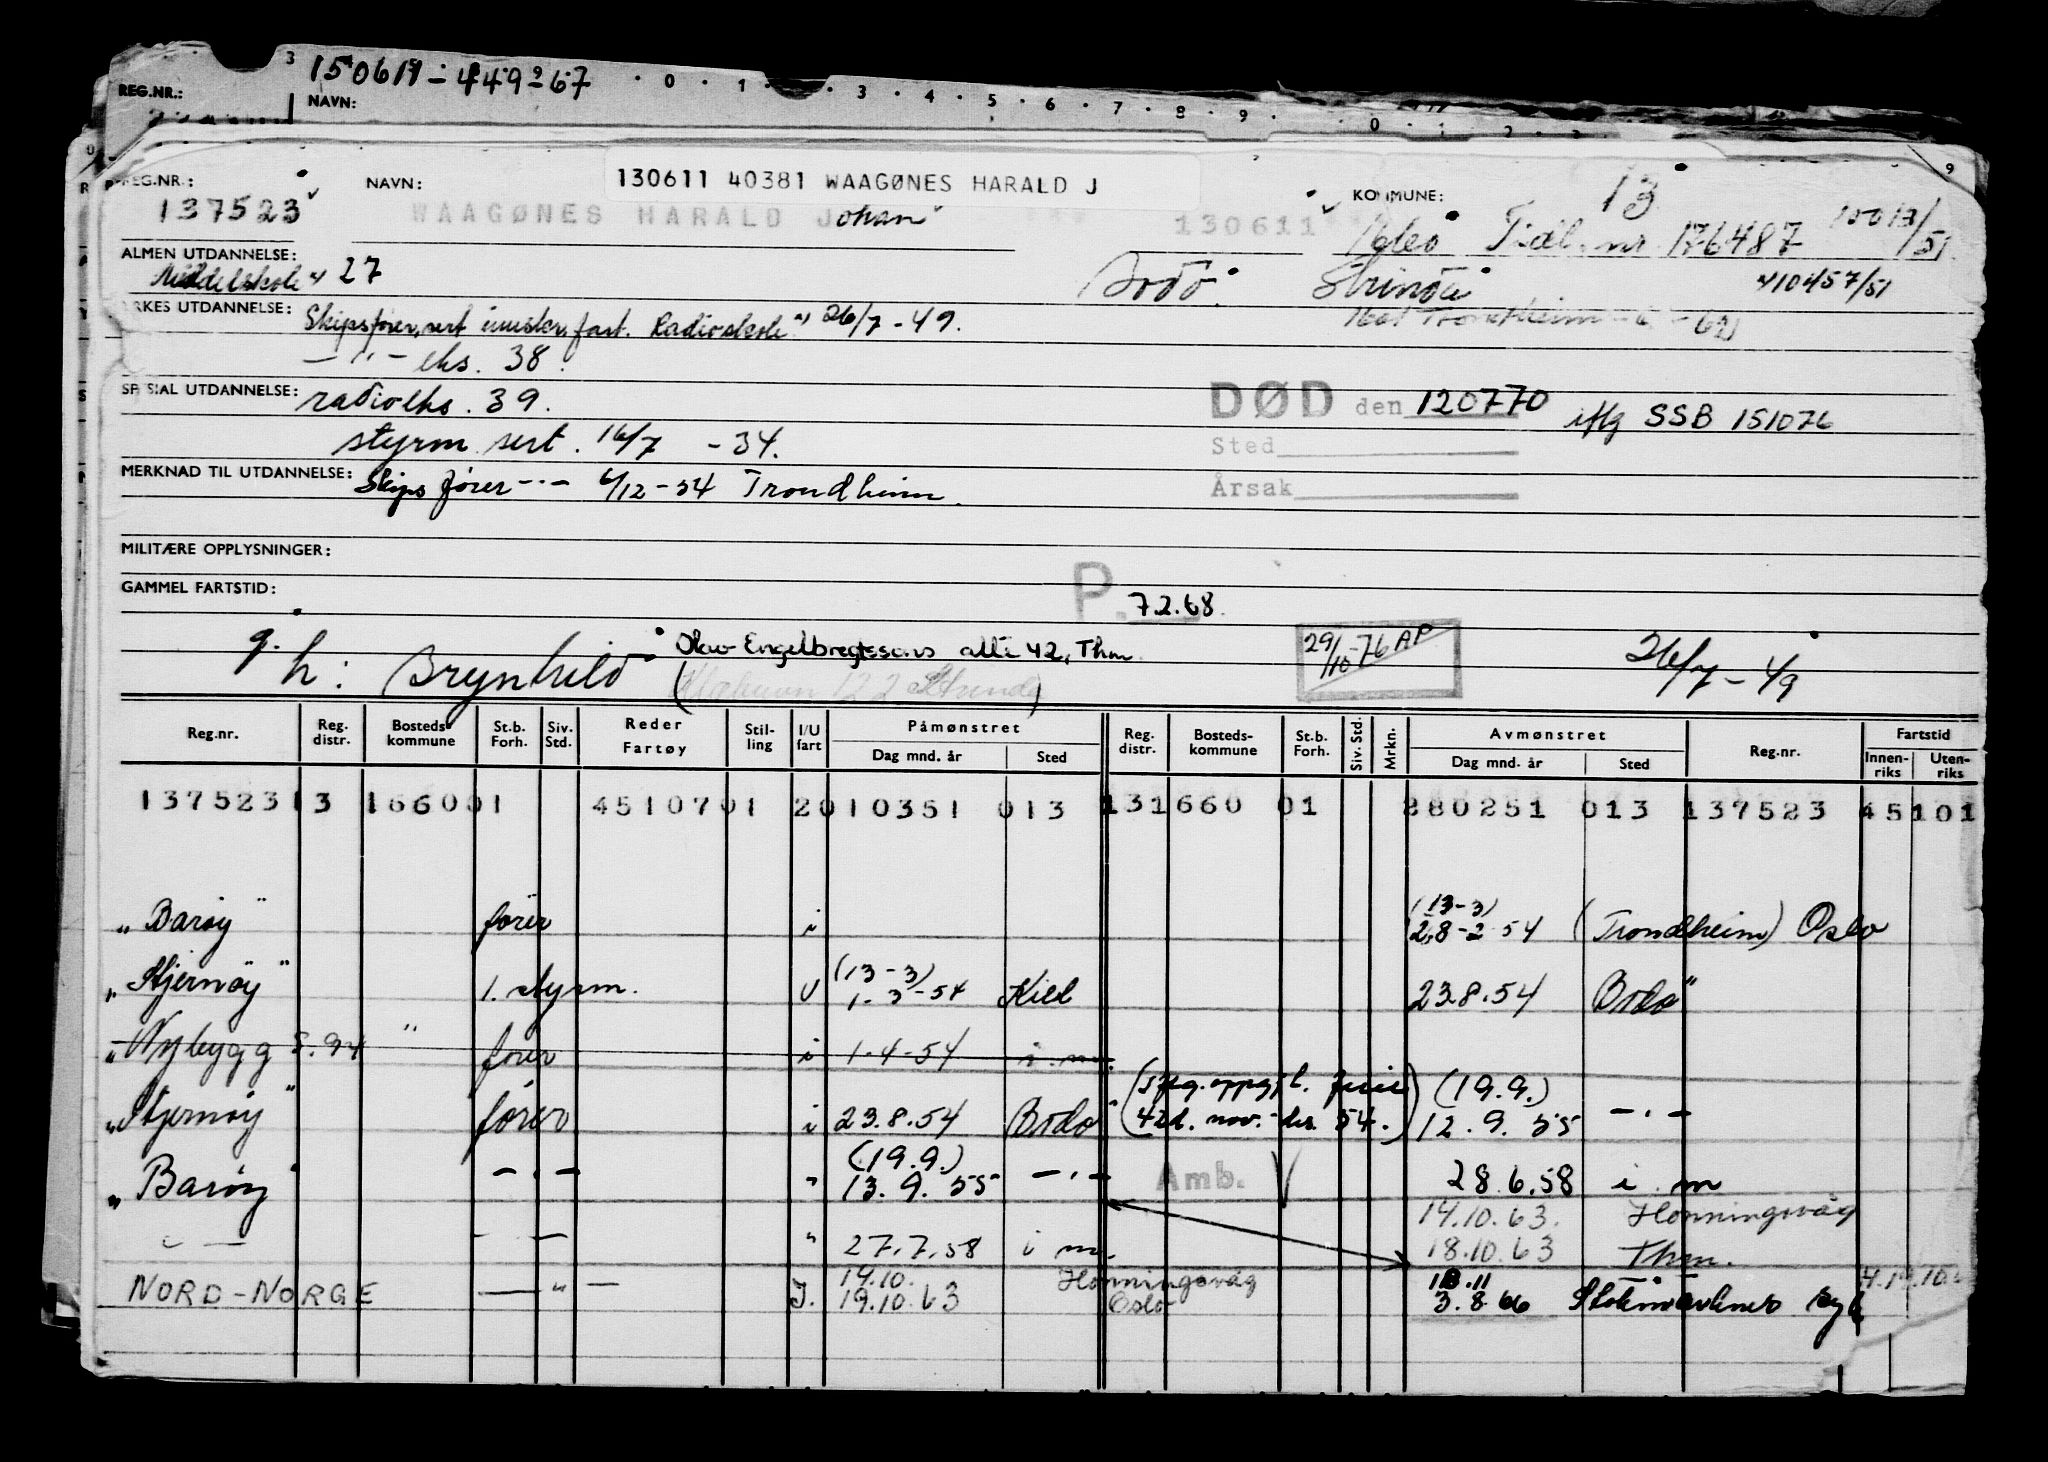 150611-449 67 0 1 3 4 5 6 7 8 9 0 1 2
REG.NR.: NAVN:
REG.NR.: NAVN: 130611 40381 WAAGØNES HARALD J KOMMUNE: 13
137523 WAAGØNES HARALD Johan 130611 Tidl. nr. 176487
ALMEN UTDANNELSE:
Middelskole 27 Bodø. Strinda 410457/51
YRKES UTDANNELSE: Skipsfører, sert. fart. Radioskole 26/7-49.
Trondheim
— " — eks. 38.
SPESIAL UTDANNELSE: radioeks. 39. DØD den 120770 iflg SSB 151076
styrm. sert. 16/7 -34. Sted
MERKNAD TIL UTDANNELSE: Skipsfører -"- 6/12-34 Trondheim. Årsak
MILITÆRE OPPLYSNINGER:
GAMMEL FARTSTID: P. 7.2.68.
g. h: Brynhild Olav Engelbregtssons allé 42, Thm. 29/10-76 AP 26/7-49
Reg.nr. Reg. distr. Bosteds kommune St.b. Forh. Siv. Std. Reder Fartøy Stil-ling I/U fart Påmønstret Dag mnd. år Sted Reg. distr. Bosteds-kommune St.b. Forh. Siv. Std. Mrkn. Avmønstret Dag mnd. år Sted Reg.nr. Fartstid Innen-riks Uten-riks
137523 13 1660 01 451070 1 2 010351 013 13 1660 01 280251 013 137523 45 101
(13-3)
"Barøy" fører i 28-2-54 (Trondheim) Oslo
(13-3)
"Stjernøy" 1. styrm. U 1-3-54 Kiel 23.8.54 Bodø
"Nybygg S.94" fører i 1-4-54 i.m.
(19.9.)
"Stjernøy" fører i 23.8.54 Bodø 42d. nov.-des. 54.) 12.9.55 -"-
(19.9.)
"Barøy" -"- " 13.9.55 -"- Amb. V 28.6.58 i.m
14.10.63. Honningsvåg
-"- " 27.7.58 i m. 18.10.63 Thm.
14.10. Honningsvåg 18.11
NORD-NORGE — " — I. 19.10.63 Oslo 3.8.66 Stokmarknes